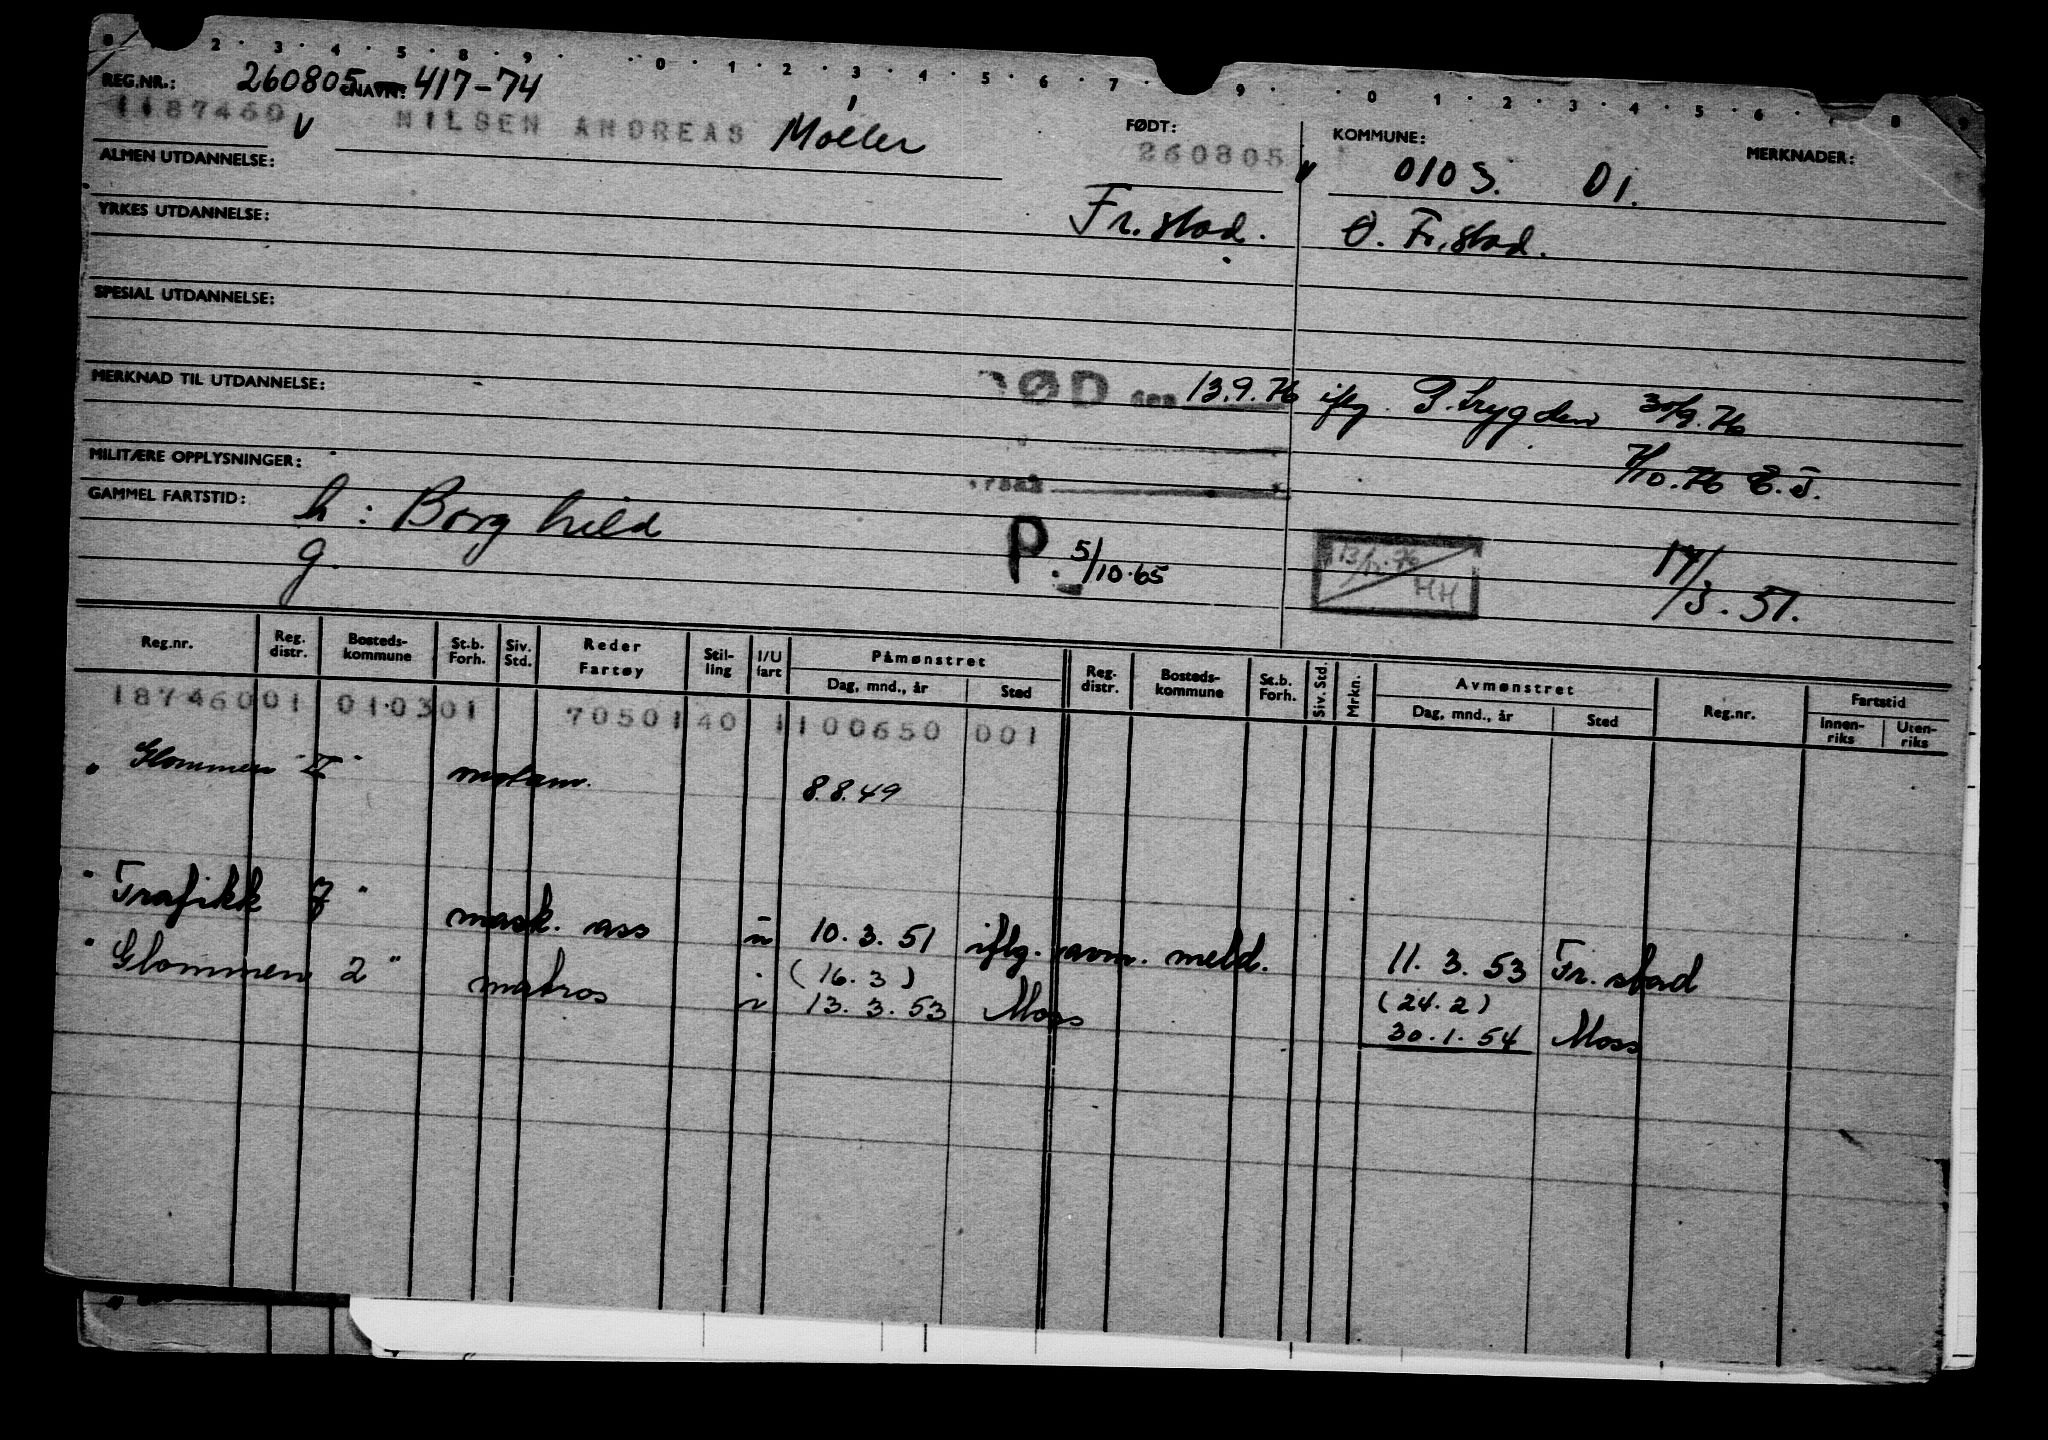 0 2 · 3 · 4 · 5 · 8 · 9 · · 0 · 1 · 2 · 3 · 4 · 5 · 6 · 7 · 9 · · 0 · 1 · 2 · 3 · 4 · 5 · 6 · 7 · 8 9
REG.NR.: 260805 NAVN: 417-74
1187460 V NILSEN ANDREAS Møller
FØDT: KOMMUNE: MERKNADER:
260805 V 0103. 01.
ALMEN UTDANNELSE:
Fr.stad. Ø. Fr.stad.
YRKES UTDANNELSE:
SPESIAL UTDANNELSE:
MERKNAD TIL UTDANNELSE:
DØD den 13.9.76 iflg. P.trygden 30/9.76
7/10.76 E.J.
MILITÆRE OPPLYSNINGER:
GAMMEL FARTSTID:
h: Borghild
g.
P. 5/10.65
HH
17/3.51.
Reg.nr. Reg. distr. Bosteds-kommune St.b. Forh. Siv. Std. Reder Fartøy Stil-ling I/U fart Påmønstret Dag, mnd., år Sted Reg. distr. Bosteds-kommune St.b. Forh. Siv. Std. Mrkn. Avmønstret Dag, mnd., år Sted Reg.nr. Fartstid Innen-riks Uten-riks
18746001 010301 7050140 1100650 001
"Glommen II" motorm. 8.8.49
"Trafikk 7" mask. ass u 10.3.51 iflg. avm. meld. 11.3.53 Fr.stad
(16.3) (24.2)
"Glommen 2" matros 13.3.53 Moss 30.1.54 Moss